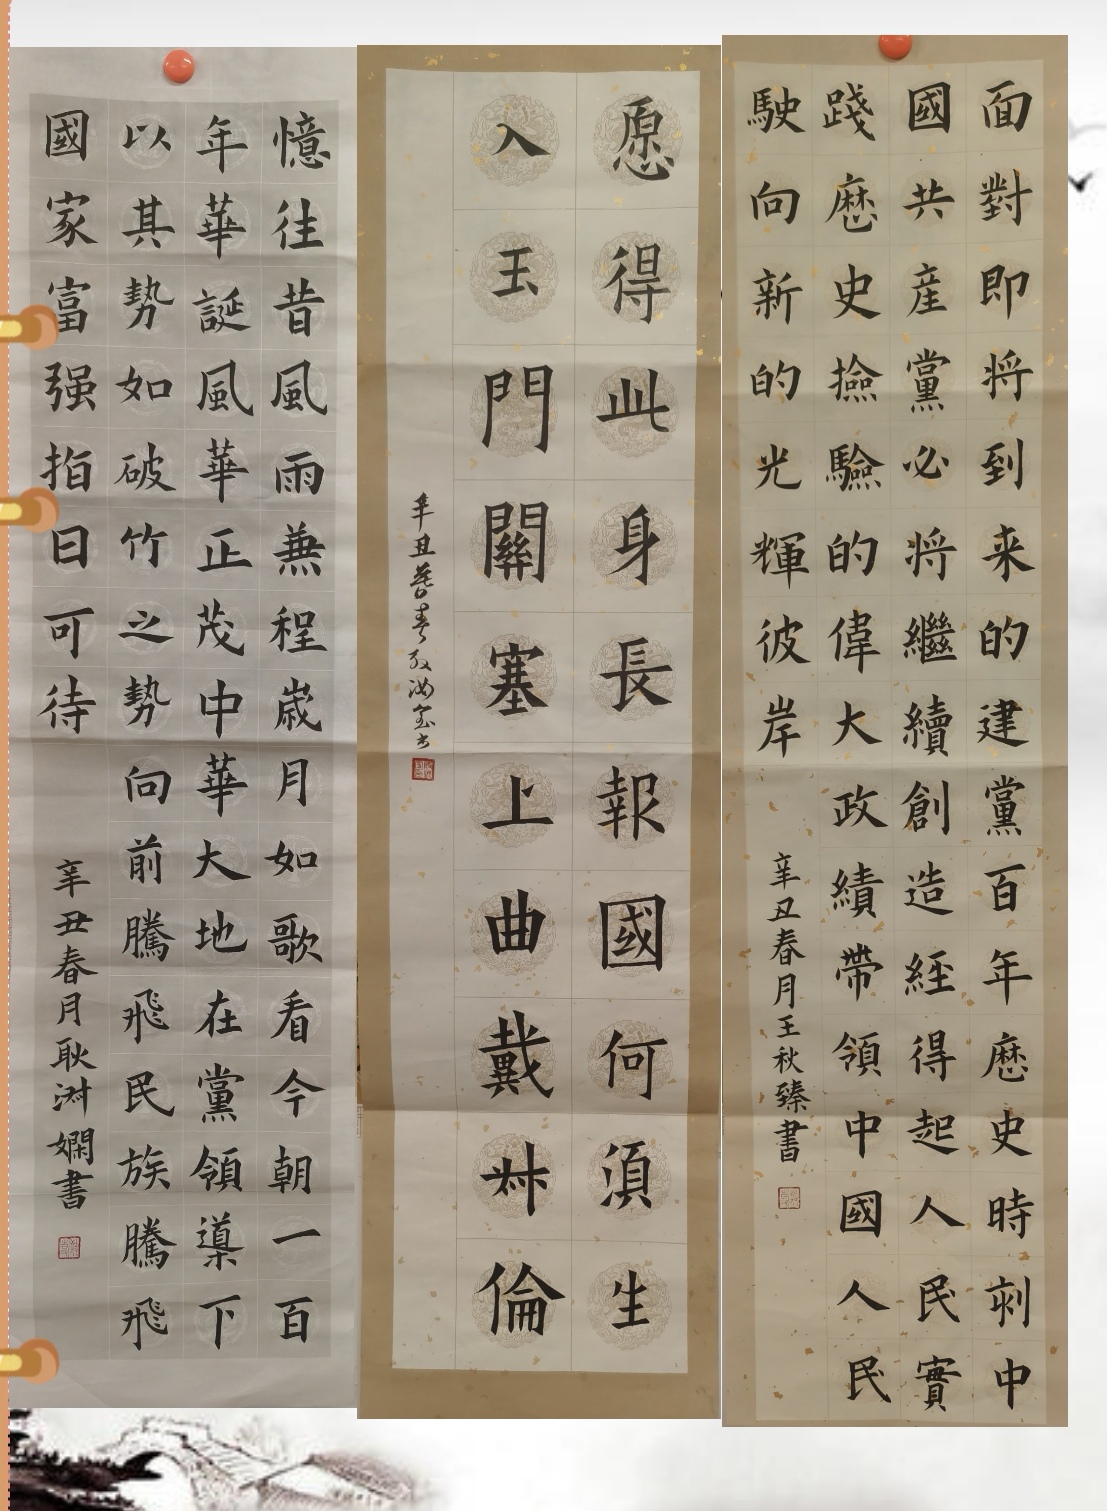 憶往昔風雨兼程歳月如歌看今朝一百
年華誕風華正茂中華大地在黨領導下
以其勢如破竹之勢向前騰飛民族騰飛
國家富强指日可待
辛丑春月耿淑嫻書
愿得此身長報國何須生
入玉門關塞上曲戴叔倫
辛丑暮春汝金书
面對即将到来的建黨百年歷史時刻中
國共産黨必将繼續創造經得起人民實
踐歷史撿驗的偉大政績帶領中國人民
駛向新的光輝彼岸
辛丑春月王秋臻書